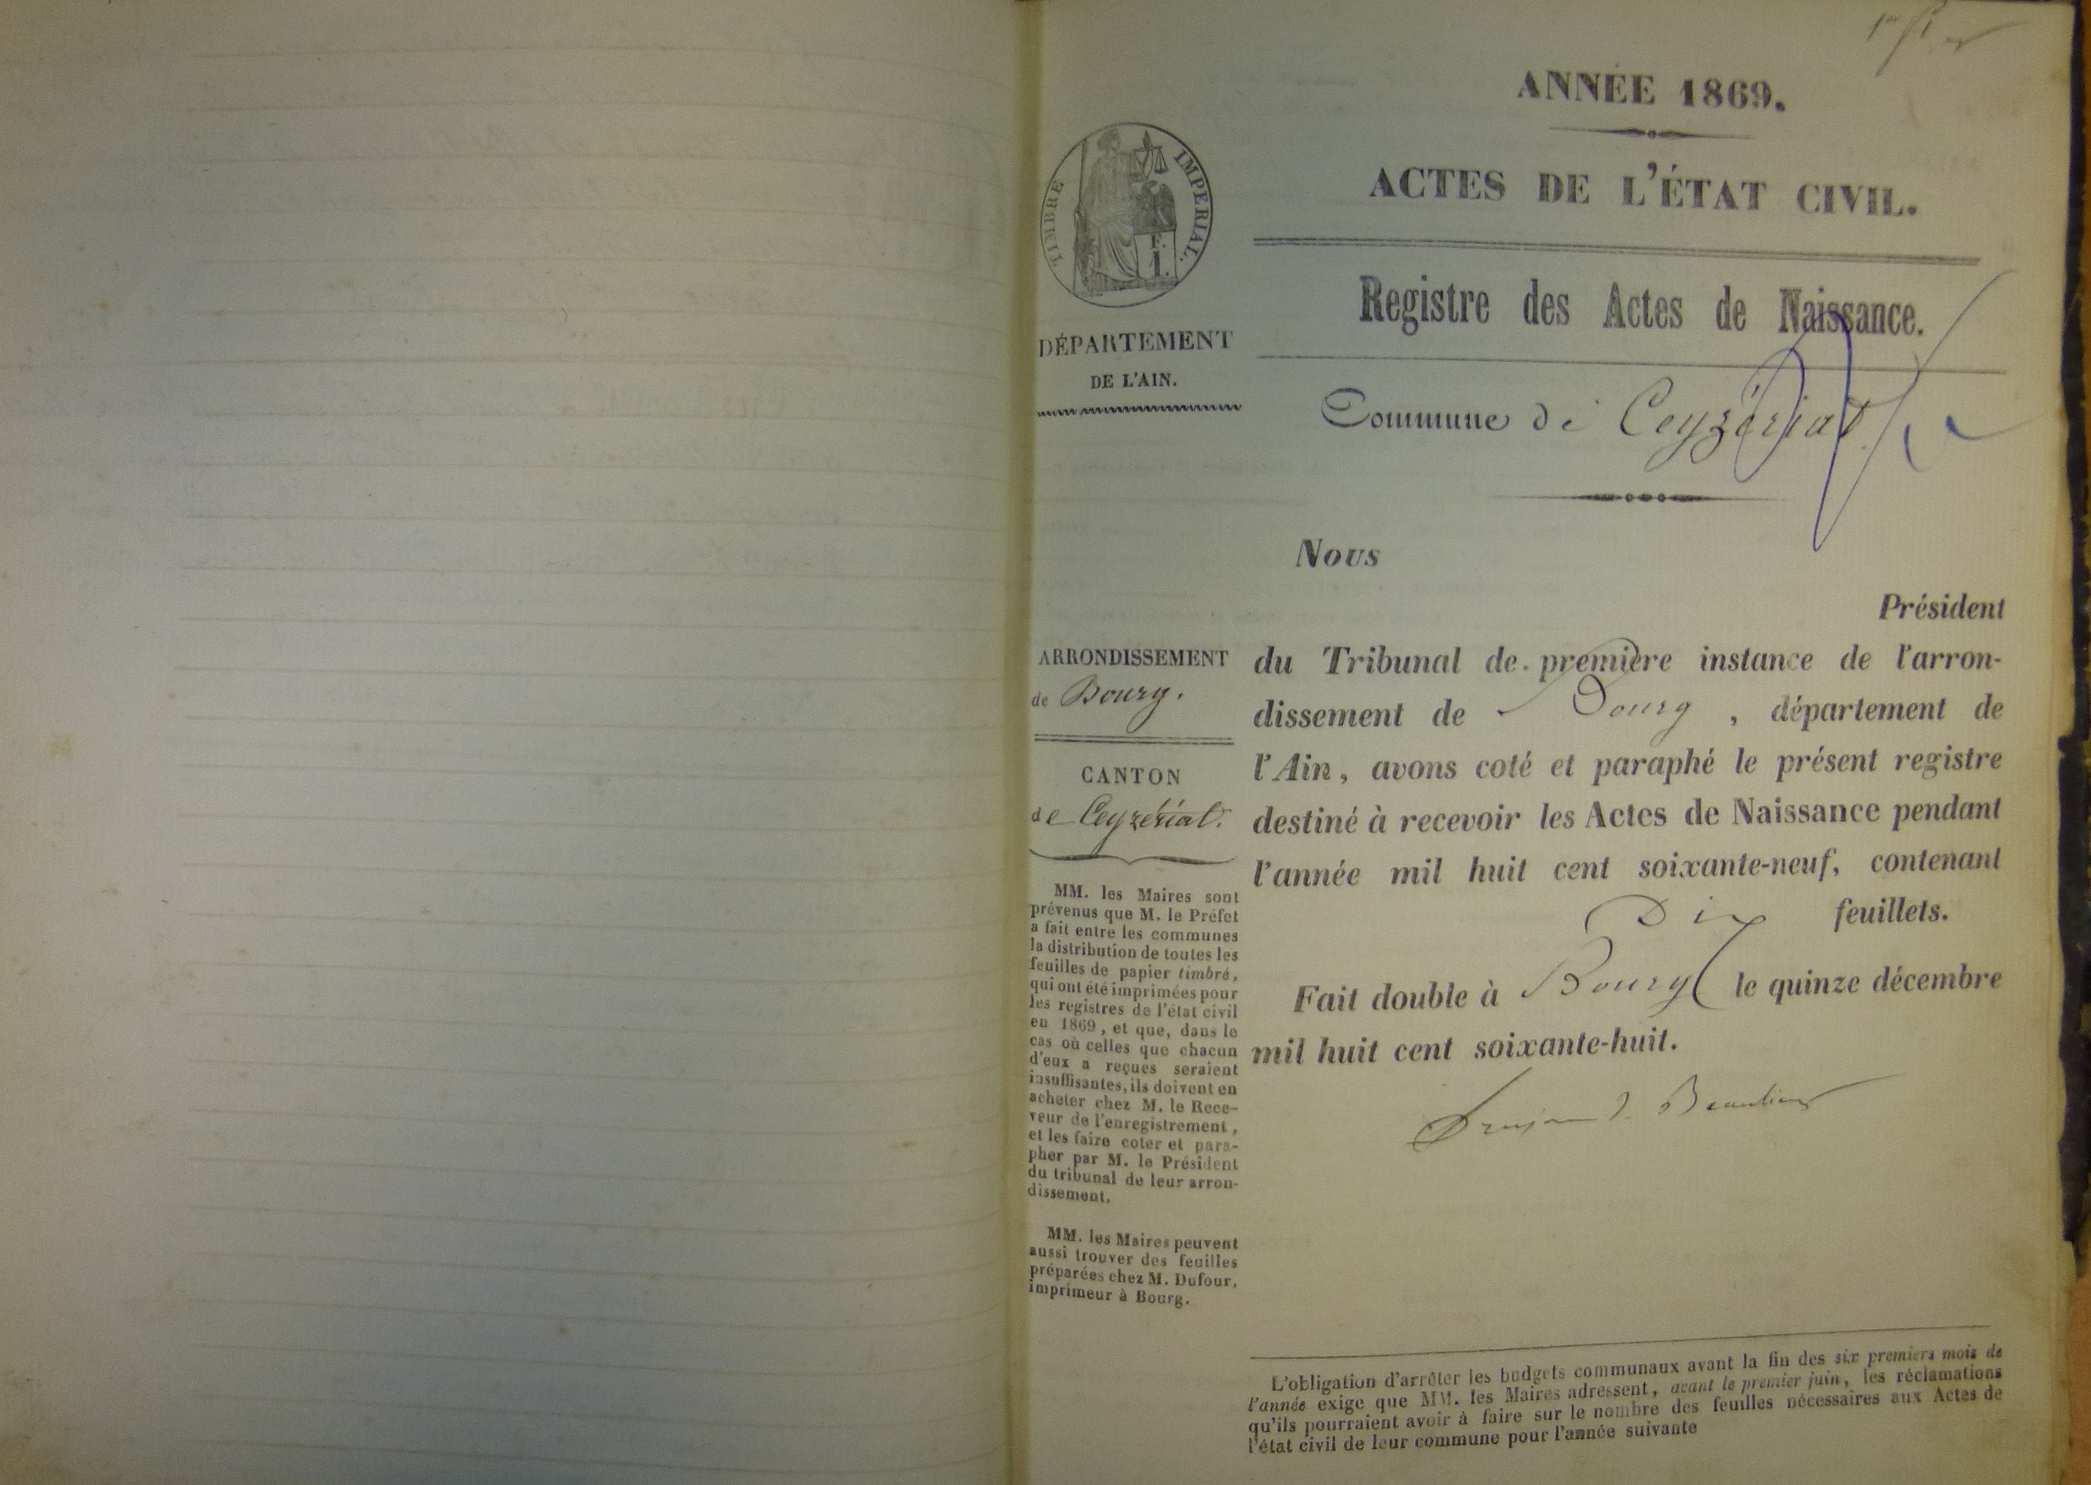 1er
ANNÉE 1869.
ACTES DE L'ÉTAT CIVIL.
TIMBRE IMPÉRIAL.
F.
1.
Registre des Actes de Naissance.
DÉPARTEMENT
DE L'AIN.
Commune de Ceyzériat.
Nous
Président
du Tribunal de première instance de l'arron-
dissement de Bourg, département de
l'Ain, avons coté et paraphé le présent registre
destiné à recevoir les Actes de Naissance pendant
l'année mil huit cent soixante-neuf, contenant
Dix feuillets.
Fait double à Bourg le quinze décembre
mil huit cent soixante-huit.
ARRONDISSEMENT
de Bourg.
CANTON
de Ceyzériat.
MM. les Maires sont
prévenus que M. le Préfet
a fait entre les communes
la distribution de toutes les
feuilles de papier timbré,
qui ont été imprimées pour
les registres de l'état civil
en 1869, et que, dans le
cas où celles que chacun
d'eux a reçues seraient
insuffisantes, ils doivent en
acheter chez M. le Rece-
veur de l'enregistrement,
et les faire coter et para-
pher par M. le Président
du tribunal de leur arron-
dissement.
MM. les Maires peuvent
aussi trouver des feuilles
préparées chez M. Dufour,
imprimeur à Bourg.
L'obligation d'arrêter les budgets communaux avant la fin des six premiers mois de
l'année exige que MM. les Maires adressent, avant le premier juin, les réclamations
qu'ils pourraient avoir à faire sur le nombre des feuilles nécessaires aux Actes de
l'état civil de leur commune pour l'année suivante